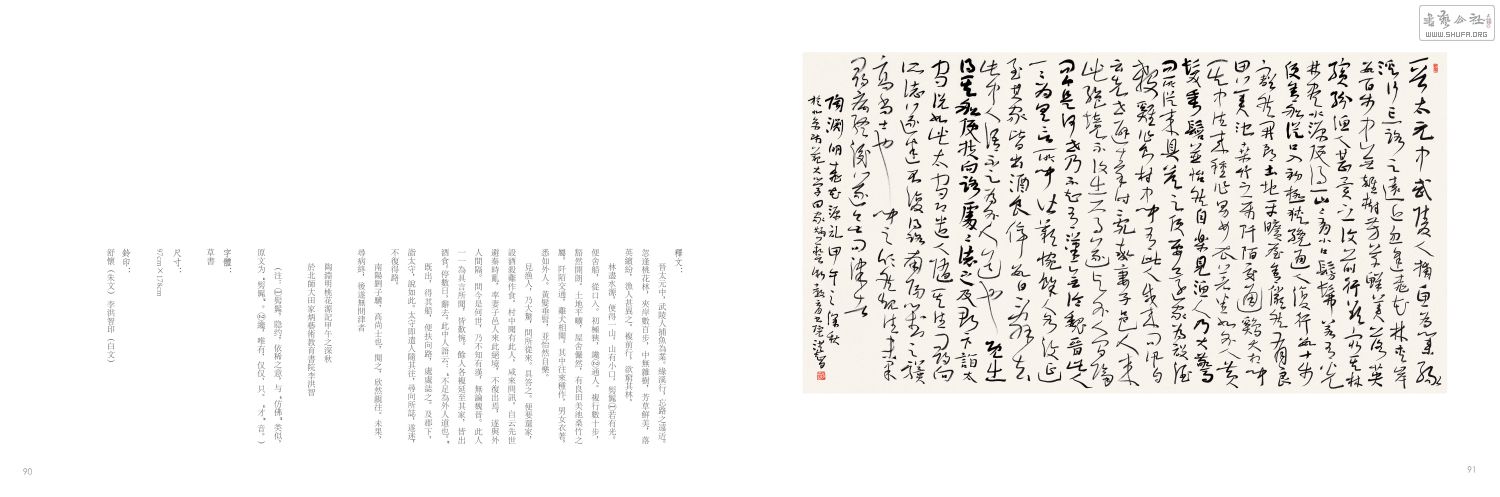 書藝公社
WWW.SHUFA.ORG
晉太元中武陵人捕魚為業緣
溪行忘路之遠近忽逢桃花林夾岸
數百步中無雜樹芳草鮮美落英
繽紛漁人甚異之復前行欲窮其林
林盡水源便得一山山有小口髣髴若有光
便舍船從口入初極狹纔通人復行數十步
豁然開朗土地平曠屋舍儼然有良
田美池桑竹之屬阡陌交通雞犬相聞
其中往來種作男女衣著悉如外人黃
髮垂髫並怡然自樂見漁人乃大驚
問所從來具答之便要還家為設酒
殺雞作食村中聞有此人咸來問訊自
云先世避秦時亂率妻子邑人來
此絕境不復出焉遂與外人間隔
問今是何世乃不知有漢無論魏晉此人
一一為具言所聞皆歎惋餘人各復延
至其家皆出酒食停數日辭去
此中人語云不足為外人道也既出
得其船便扶向路處處誌之及郡下詣太
守說如此太守即遣人隨其往尋向
所誌遂迷不復得路南陽劉子驥
高尚士也聞之欣然規往未果
尋病終後遂無問津者
陶淵明桃花源記甲午之深秋
91
釋文：
晉太元中，武陵人捕魚為業；緣溪行，忘路之遠近。
忽逢桃花林，夾岸數百步，中無雜樹，芳草鮮美，落
英繽紛，漁人甚異之。複前行，欲窮其林。
林盡水源，便得一山，山有小口，髣髴⑴若有光。
便舍船，從口入。初極狹，纔⑵通人。複行數十步，
豁然開朗。土地平曠，屋舍儼然，有良田美池桑竹之
屬。阡陌交通，雞犬相聞。其中往來種作，男女衣著，
悉如外人。黃髮垂髫，並怡然自樂。
見漁人，乃大驚，問所從來。具答之。便要還家，
設酒殺雞作食。村中聞有此人，咸來問訊。自云先世
避秦時亂，率妻子邑人來此絕境，不復出焉，遂與外
人間隔。問今是何世，乃不知有漢，無論魏晉。此人
一一為具言所聞，皆歎惋。餘人各複延至其家，皆出
酒食。停數日，辭去。此中人語云：“不足為外人道也。”
既出，得其船，便扶向路，處處誌之。及郡下，
詣太守，說如此。太守即遣人隨其往，尋向所誌，遂迷，
不復得路。
南陽劉子驥，高尚士也，聞之，欣然規往。未果，
尋病終，後遂無問津者
陶淵明桃花源記甲午之深秋
於北師大田家炳藝術教育書院李洪智
（注：⑴髣髴，隱約，依稀之意，與“仿佛”類似，
原文為“髣髴”。⑵纔，唯有，僅僅，只。“才”音。）
字體：
草書
尺寸：
97cm×178cm
鈐印：
舒懷（朱文） 李洪智印（白文）
90